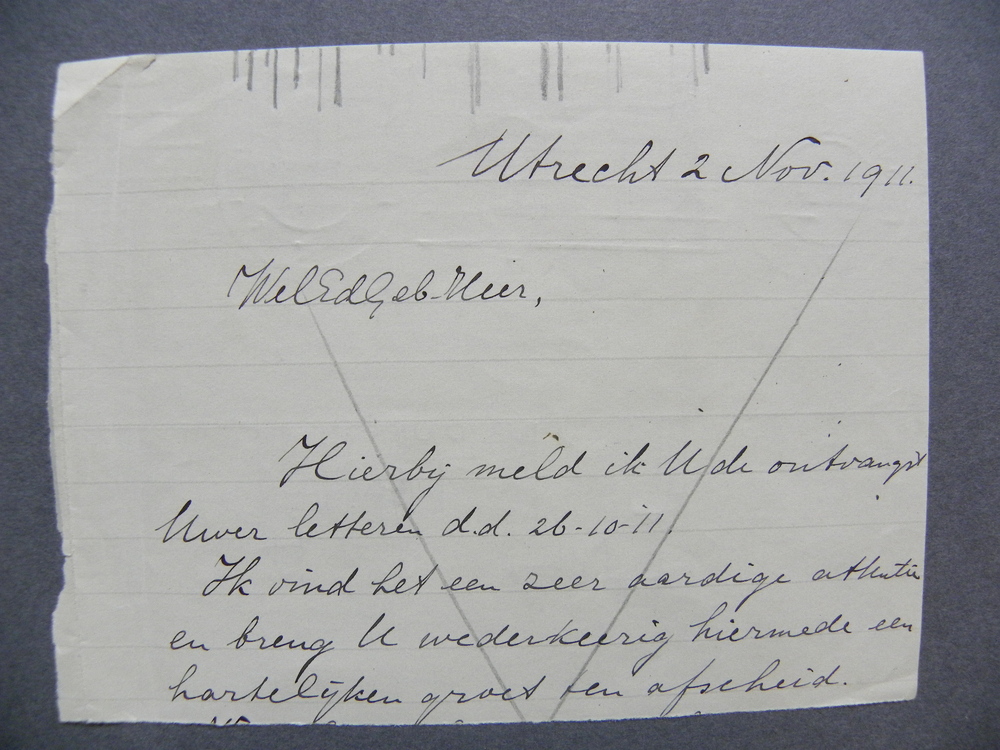 Utrecht 2 Nov. 1911.
WelEdGeb. Heer,
Hierbij meld ik U de ontvangst
Uwer letteren d.d. 26-10-11.
Ik vind het een zeer aardige attentie
en breng U wederkeerig hiermede een
hartelijken groet ten afscheid.